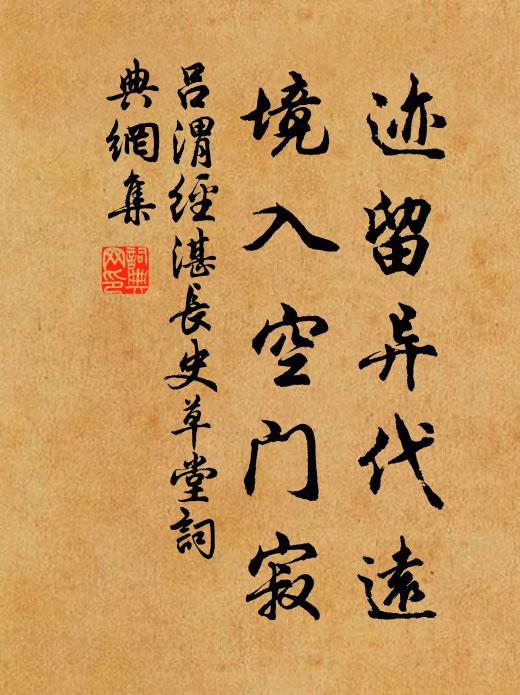 迹留异代遠
境入空门寂
吕渭經湛長史草堂詞
典網集
詞典
网印